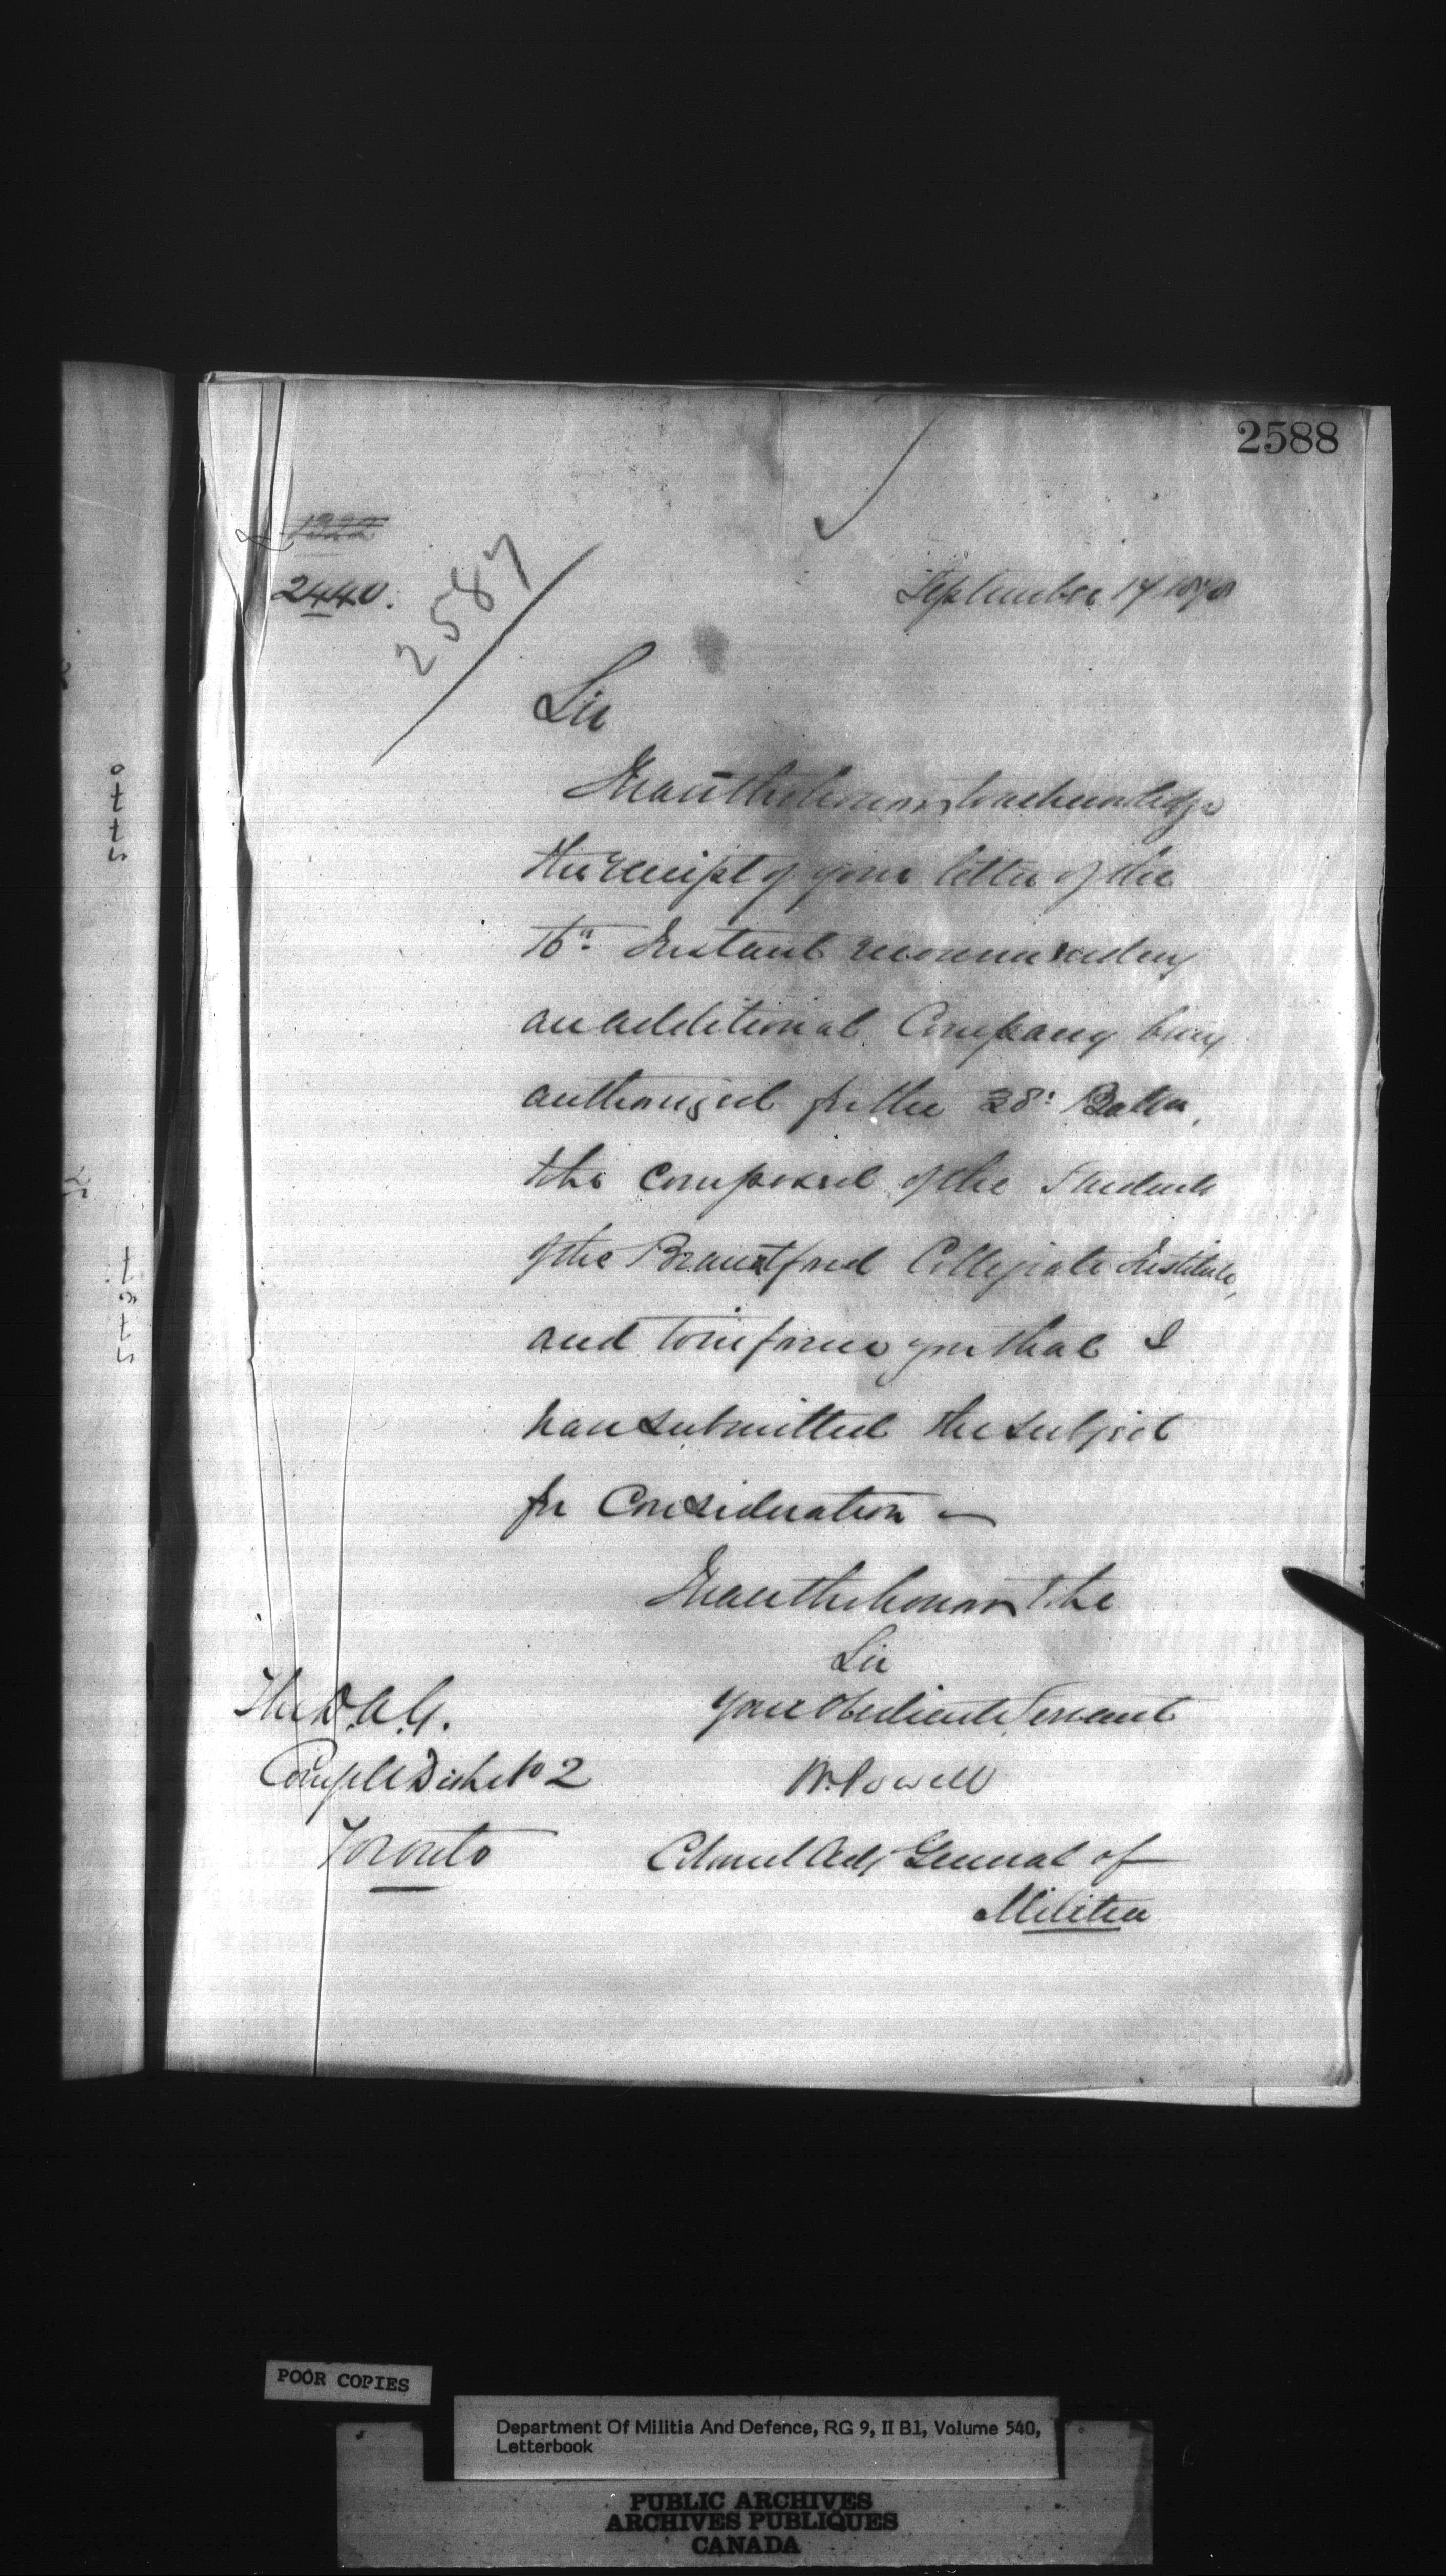 2588
1322
2440.
2587
September 17 1878
Sir
I have the honour to acknowledge
the receipt of your letter of the
16th Instant recommending
an additional Company being
authorized for the 38th Battn,
to be composed of the Students
of the Brantford Collegiate Institute,
and to inform you that I
have submitted the subject
for Consideration —
I have the honour to be
Sir
your obedient Servant
W. Powell
Colonel Adj General of
Militia
The D.A.G.
Comg Mil Dist No 2
Toronto
POOR COPIES
Department Of Militia And Defence, RG 9, II B1, Volume 540,
Letterbook
PUBLIC ARCHIVES
ARCHIVES PUBLIQUES
CANADA